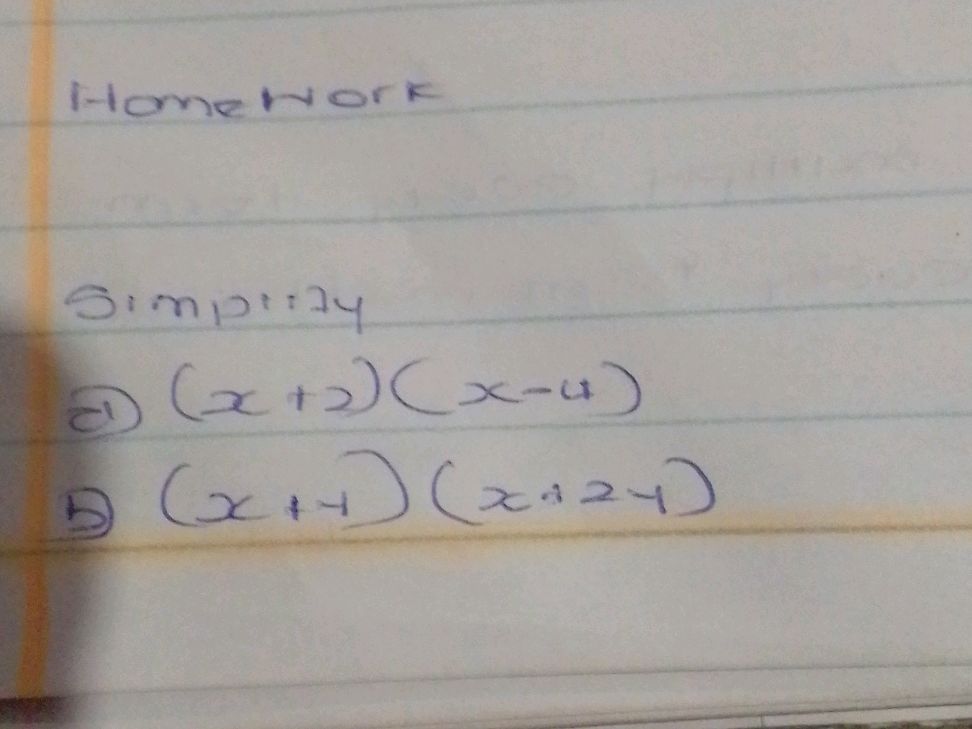 Homework
Simplify
a) (x+2)(x-4)
b) (x+y)(x+2y)